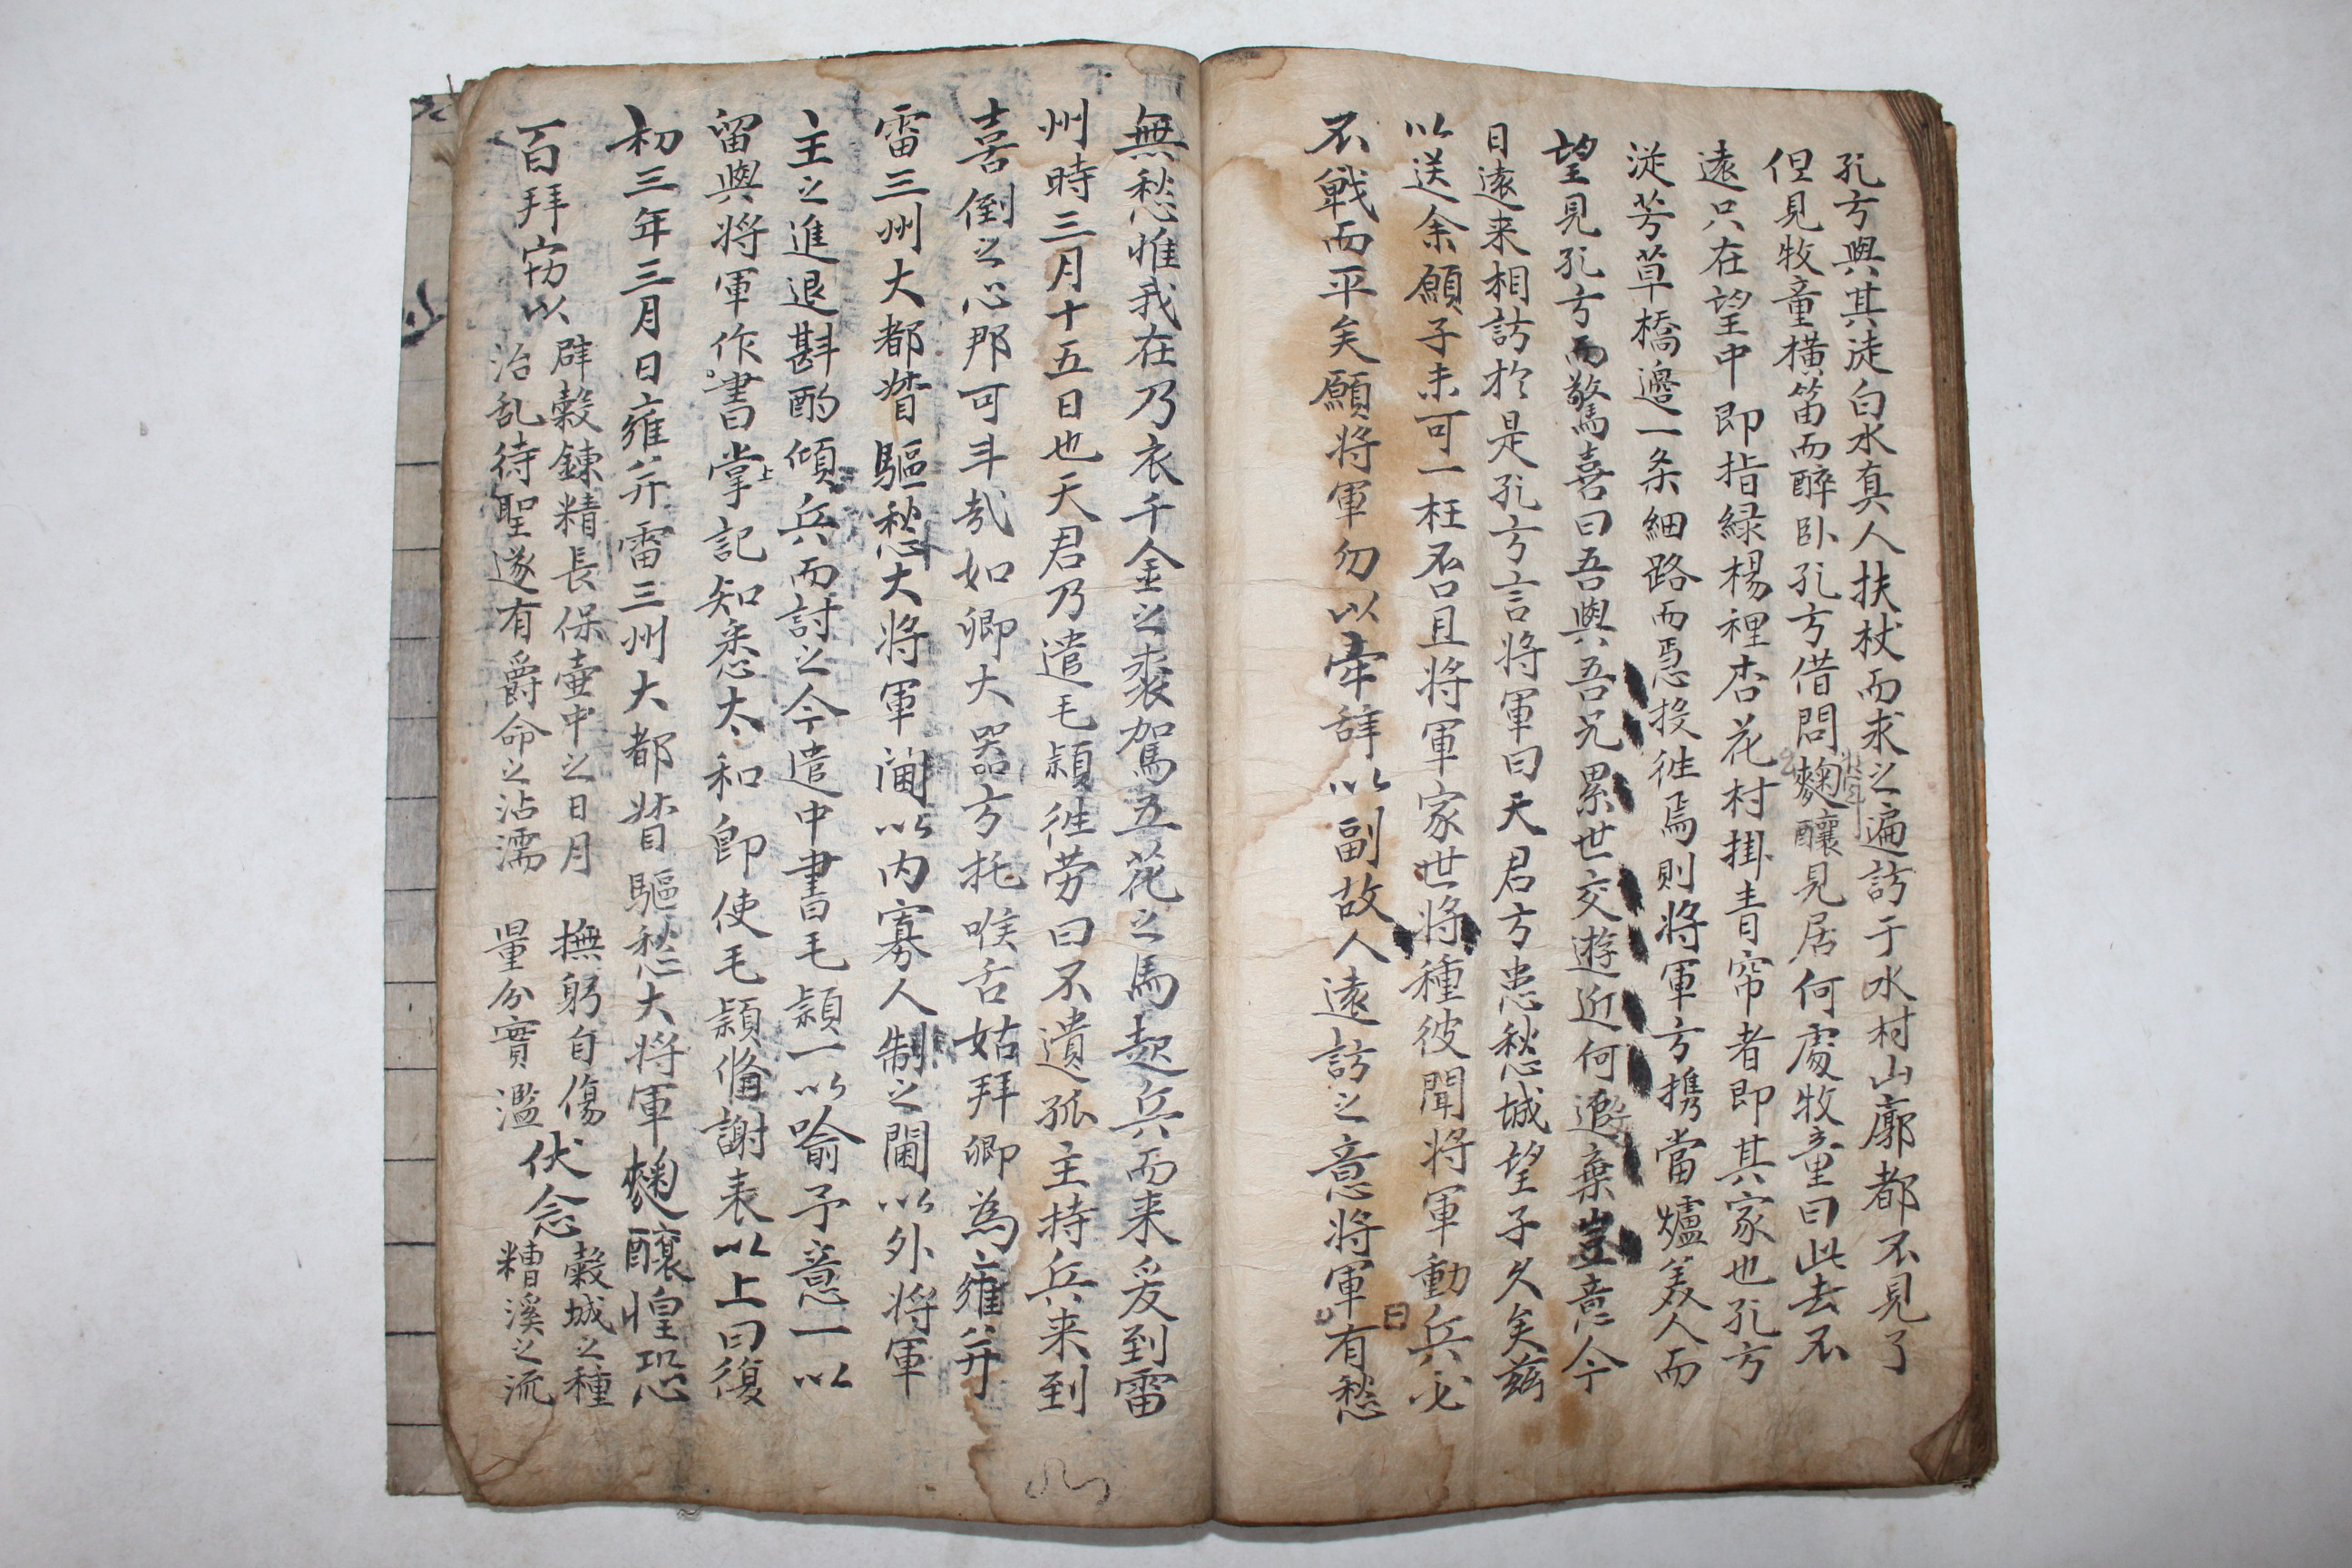 孔方與其徒白水真人扶杖而求之遍訪于水村山廓都不見了
但見牧童横笛而醉卧孔方借問麴釀見居何處牧童曰此去不
遠只在望中即指緑楊裡杏花村掛青帘者即其家也孔方
從芳草橋邊一条細路而忽投徃焉則将軍方携當爐美人而
望見孔方而驚喜曰吾與吾兄累世交遊近何遐棄豈意今
日遠来相訪於是孔方言将軍曰天君方患愁城望子久矣茲
以送余願子未可一枉否且将軍家世将種彼聞将軍動兵必
不戰而平矣願将軍勿以牢辞以副故人遠訪之意将軍有愁
曰
無愁惟我在乃衣千金之裘駕五花之馬起兵而来爰到雷
州時三月十五日也天君乃遣毛穎徃劳曰不遺孤主持兵来到
喜倒之心那可斗哉如卿大器方托喉舌姑拜卿為雍并
雷三州大都督驅愁大将軍閫以内寡人制之閫以外将軍
主之進退斟酌傾兵而討之今遣中書毛穎一以喩予意一以
留與将軍作書掌記知悉太和即使毛穎俻謝表以上曰復
初三年三月日雍并雷三州大都督驅愁大将軍麴釀惶恐
百拜窃以 辟穀鍊精長保壷中之日月 撫躬自傷 伏念 穀城之種
治乱待聖遂有爵命之沾濡 量分實濫 糟溪之流